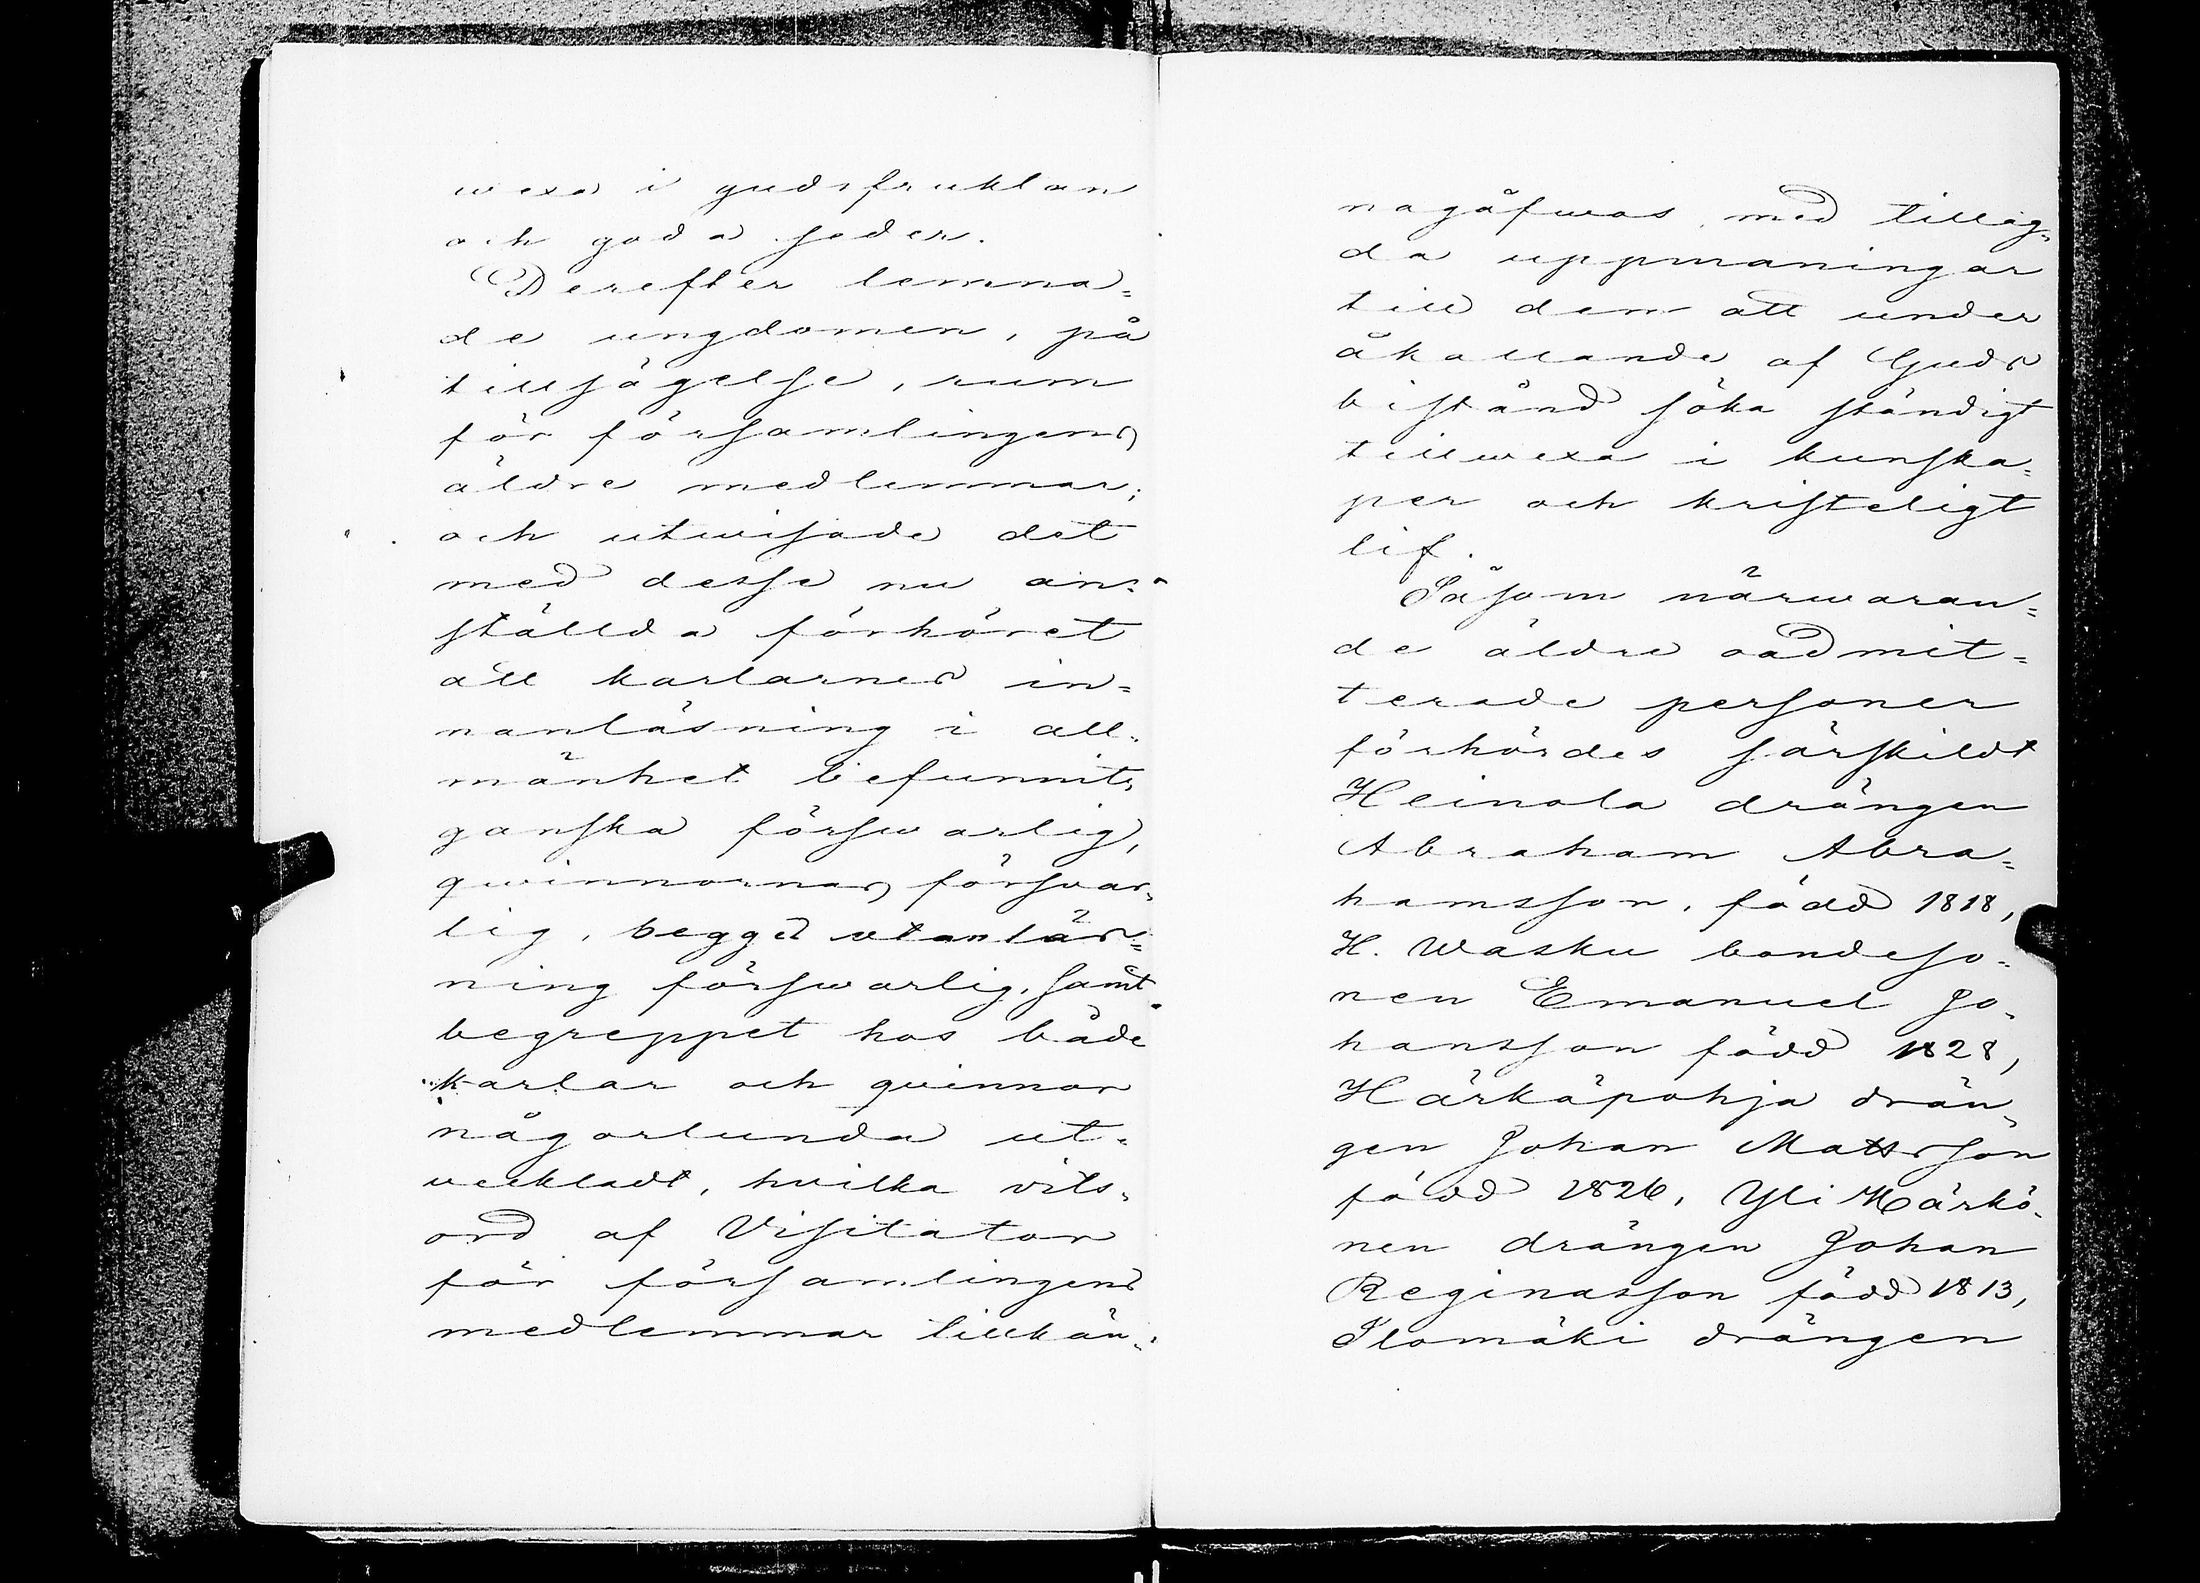 wexa i gudsfruktan
och goda seder.
Derefter lemna=
de ungdomen, på
tillsägelse, rum
för församlingens
äldre medlemmar;
och utwisade det
med desse nu an=
ställda förhöret
att karlarnes in=
nanläsning i all=
mänhet befunnits
ganska förswarlig,
qwinnornas försvar=
lig, begges utanläs=
ning förswarlig, samt
begreppet hos både
karlar och qvinnor
någorlunda ut=
veckladt, hvilka vits=
ord af Visitator
för församlingens
medlemmar tillkän=
nagåfwos med tillag=
da uppmaningar
till dem att under
åkallande af Guds
bistånd söka ständigt
tillwexa i kunska=
per och kristeligt
lif.
Såsom närwaran=
de äldre oadmit=
terade personer
förhördes särskildt
Heinola drängen
Abraham Abra=
hamsson, född 1818,
H. Wasku bondeso=
nen Emanuel Jo=
hansson född 1828,
Härkäpohja drän=
gen Johan Mattsson
född 1826, Yli Härkö=
nen drängen Johan
Reginasson född 1813,
Ilomäki drängen